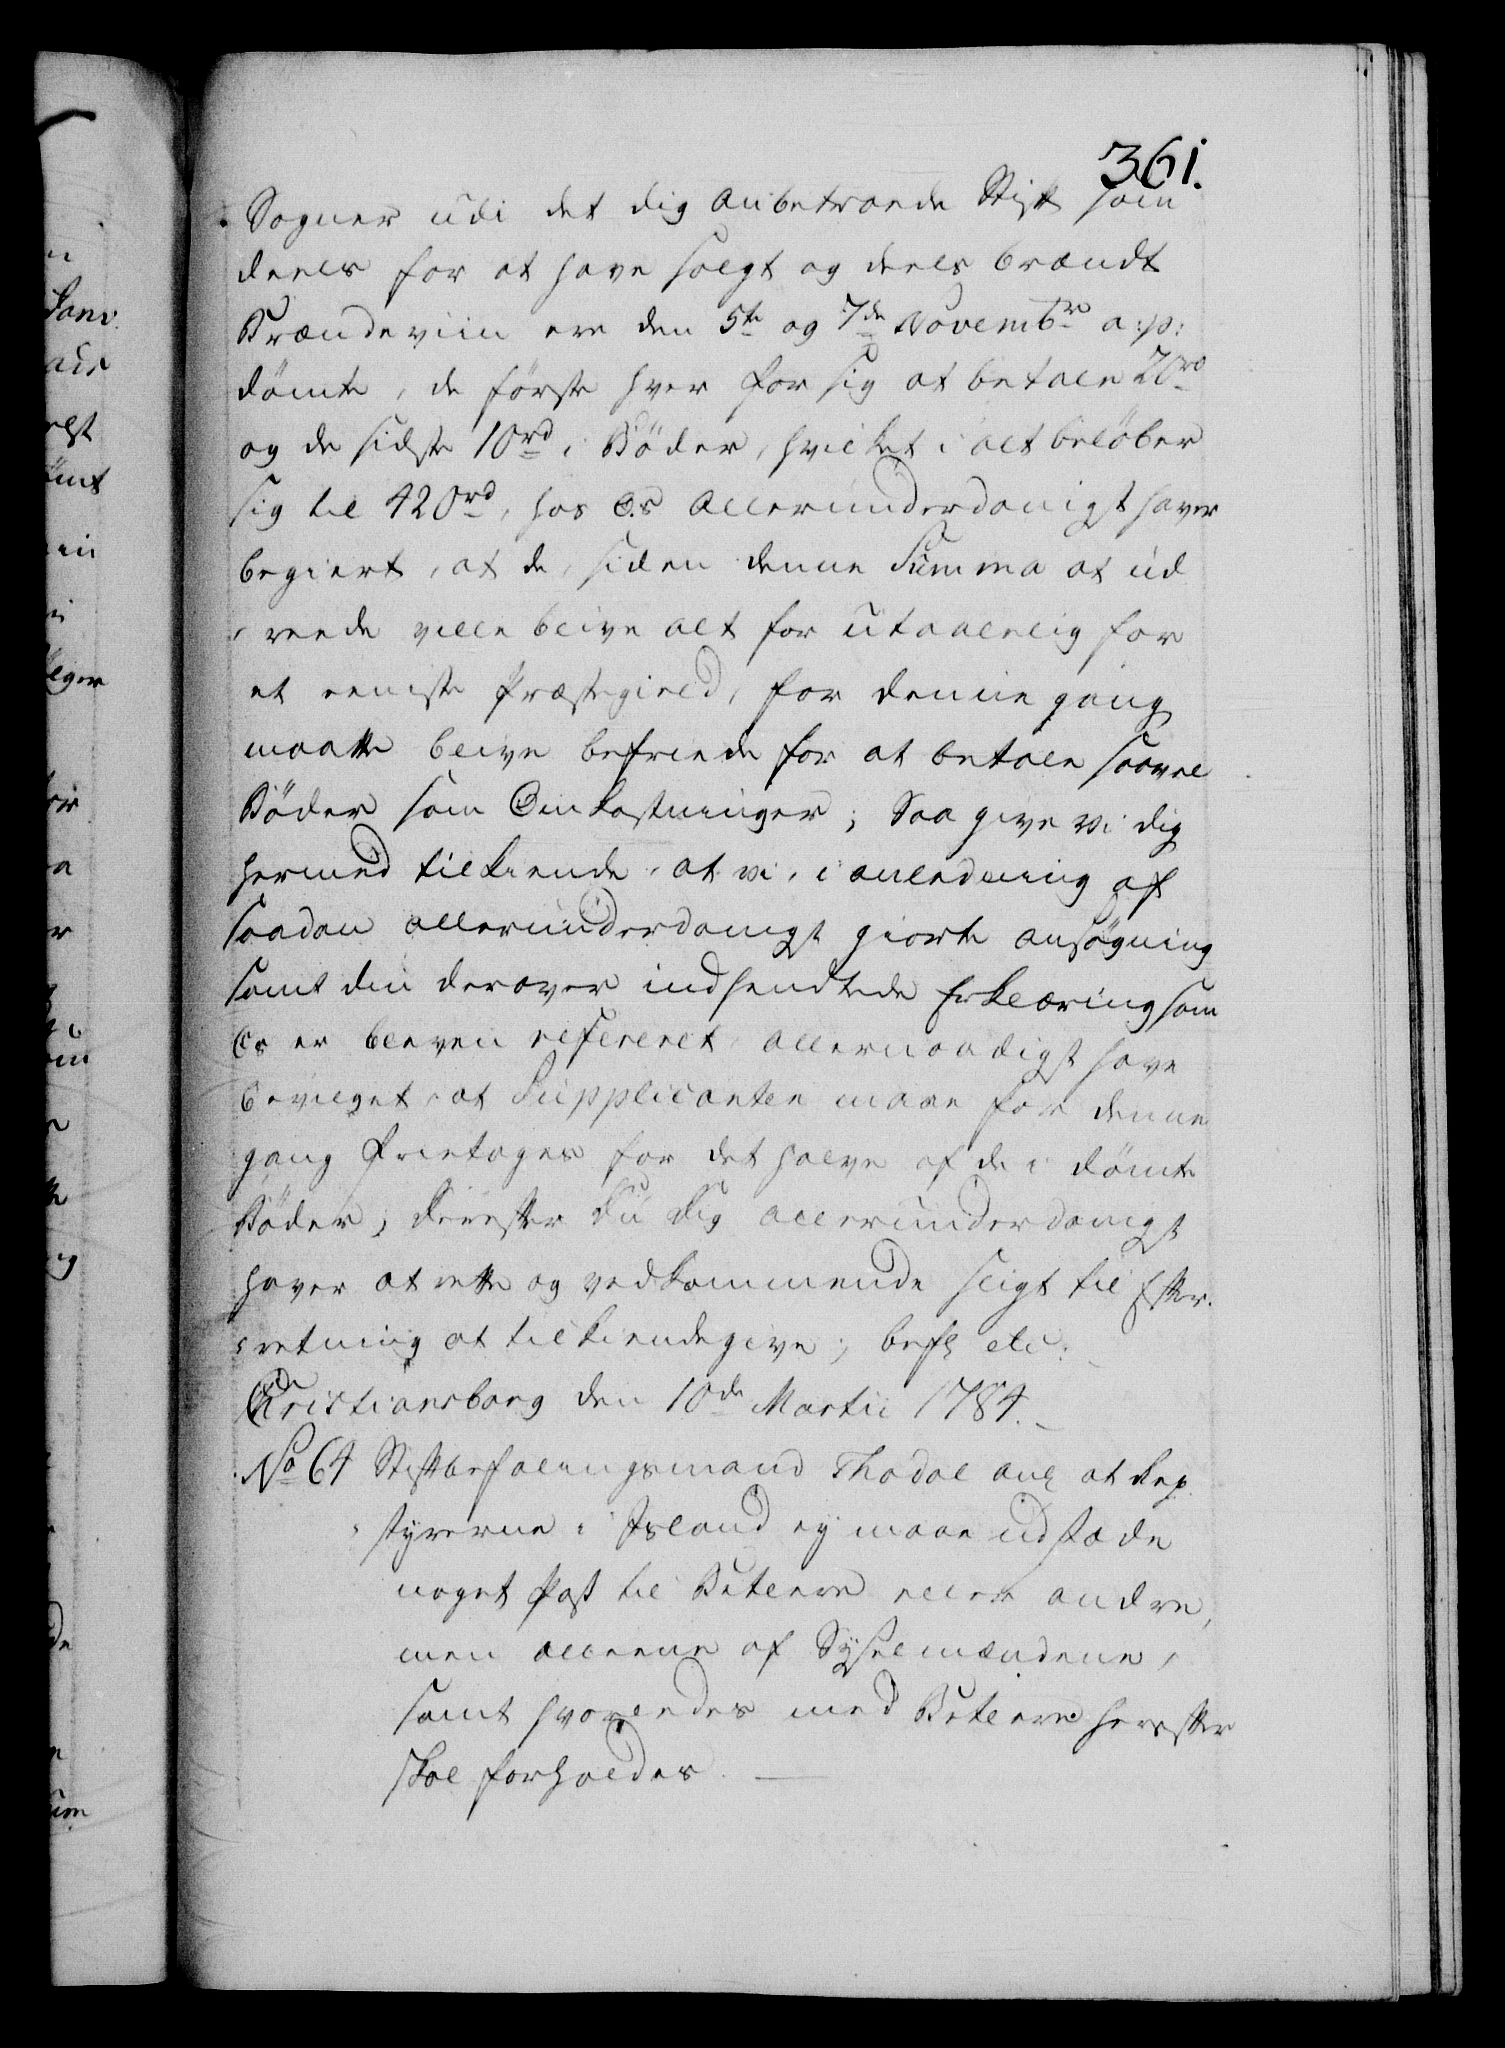 361.
Sogner udi det dig anbetroede Stift som
deels for at have solgt og deels brændt
Brændeviin ere den 5te og 7de Novembr a:p:
dömte, de förste hver for sig at betale 20rd
og de sidste 10rd i Böder, hvilket i alt belöber
sig til 420rd, hos Os allerunderdanigst haver
begiert, at de, siden denne Summa at ud
rede ville blive alt for utaalelig for
et eeniste Præstegield, for denne gang
maatte blive befriede for at betale saavel
Böder som Omkostninger; Saa give vi dig
hermed tilkiende, at vi, i anledning af
saadan allerunderdanigst giorte ansögning
samt din derover indsendtede Erklæring som
Os er bleven refereret allernaadigst have
bevilget, at Supplicanten maae for denne
gang frietages for det halve af de i dömte
Böder; Derefter du dig allerunderdanigst
haver at rette og vedkommende sligt til Efter-
retning at tilkiendegive; befl etc:
Christiansborg den 10de Martii 1784.
No 64 Stiftbefalingsmand Thodal anl at Rep
styrerne i Island ey maae udstæde
noget Pass til Betlere eller andre,
men alleene af Sysselmændene,
samt hvorledes med Betlere herefter
skal forholdes.
Sanv.